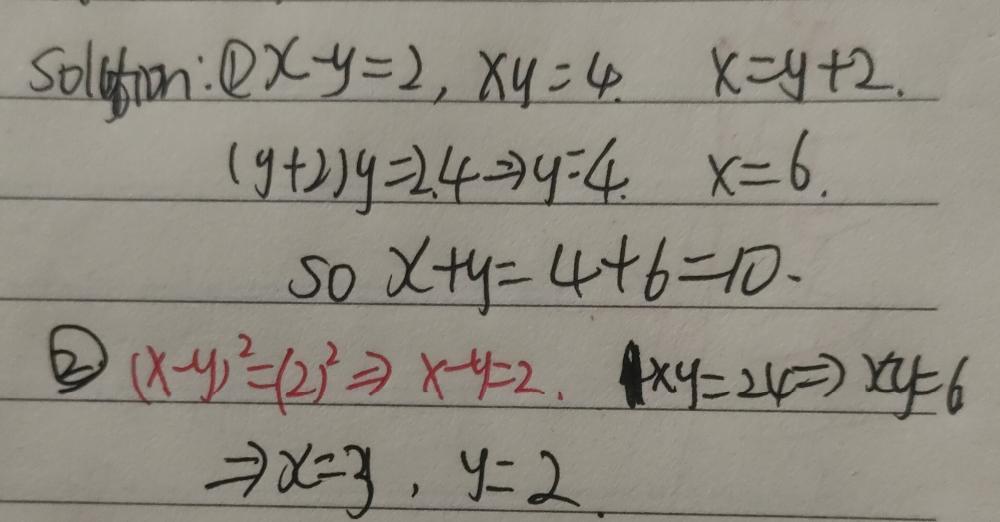 Solution: ① x-y=2, xy=4. x=y+2.
(y+2)y=24⇒y=4. x=6.
so x+y=4+6=10.
② (x-y)²=(2)²⇒ x-y=2. 4xy=24⇒ xy=6
⇒x=3, y=2.